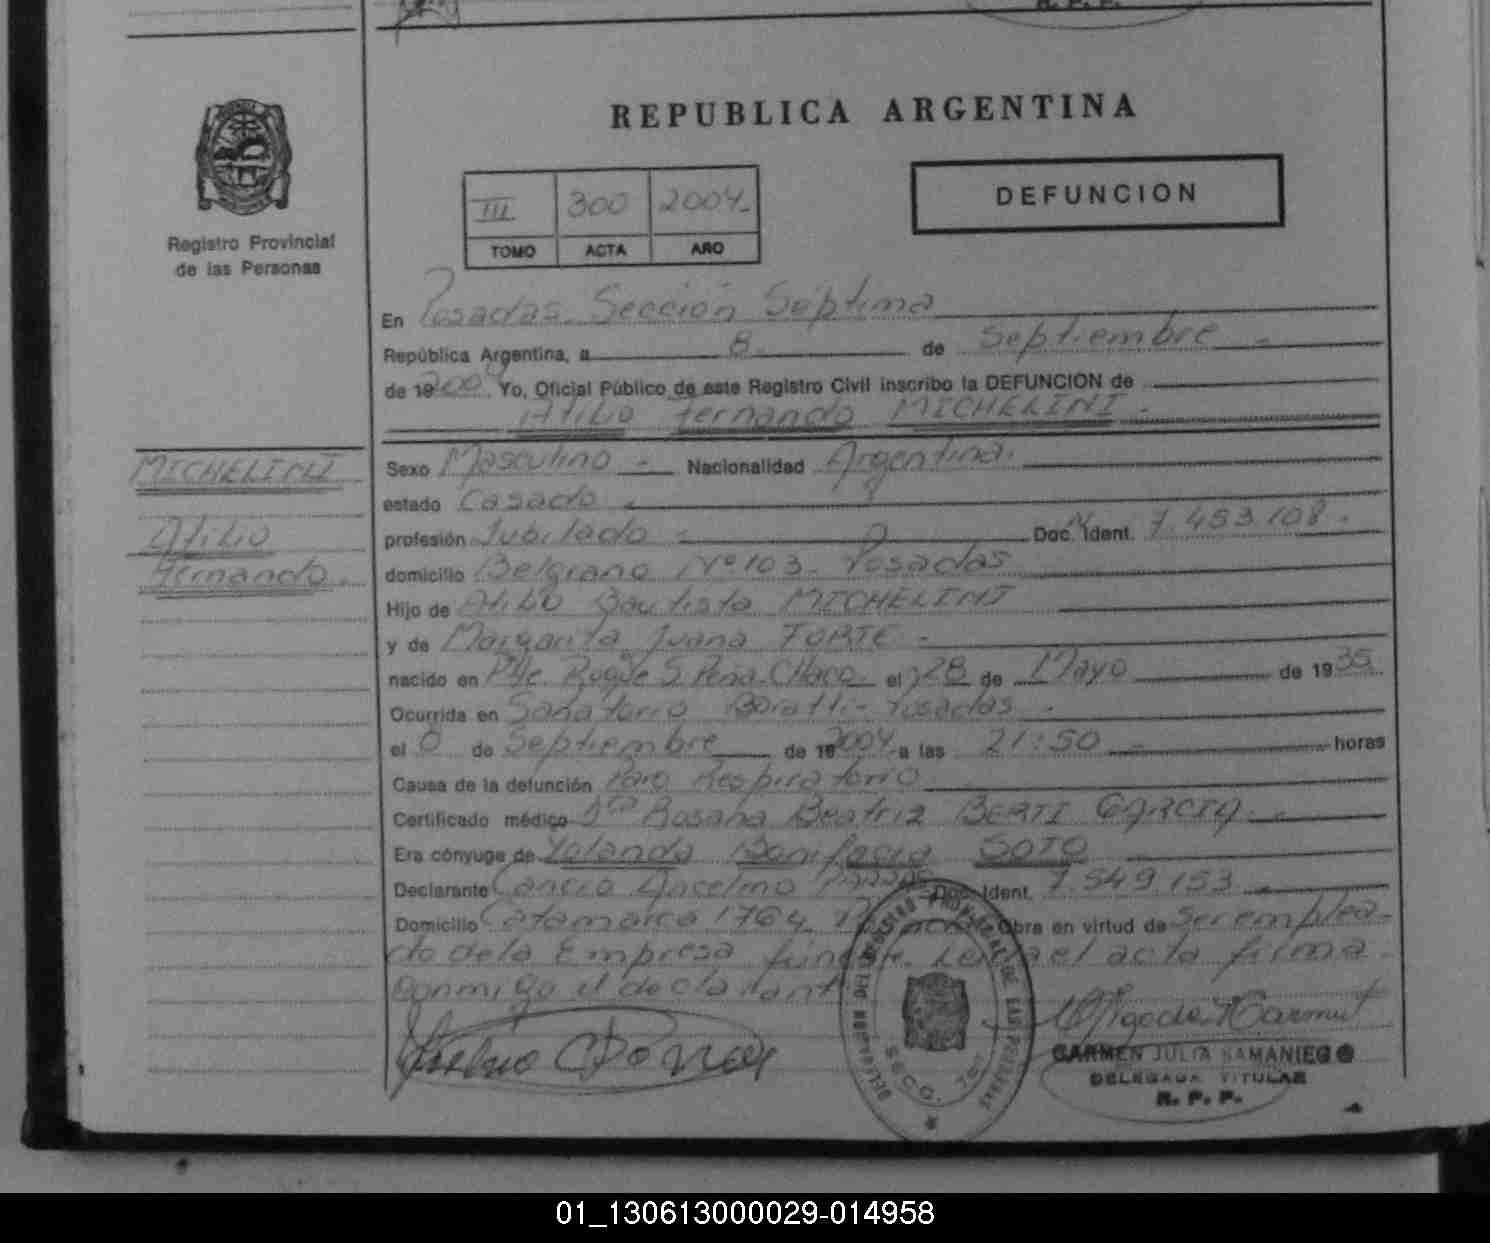 R. P. P.
REPUBLICA ARGENTINA
III 300 2004
TOMO ACTA AÑO
DEFUNCION
Registro Provincial
de las Personas
En Posadas Sección Séptima
República Argentina, a 8 de Septiembre
de 19 2004 Yo, Oficial Público de este Registro Civil inscribo la DEFUNCION de
Atilio Fernando MICHELINI
MICHELINI
Atilio
Fernando
Sexo Masculino Nacionalidad Argentina
estado Casado
profesión Jubilado Doc. Ident. 7.453.108
domicilio Belgrano Nº 103 Posadas
Hijo de Atilio Bautista MICHELINI
y de Margarita Juana FORTE
nacido en Pcia. Roque S. Peña Chaco el 28 de Mayo de 1935
Ocurrida en Sanatorio Boratti - Posadas
el de Septiembre de 19 2004 a las 21:50 horas
Causa de la defunción Paro Respiratorio
Certificado médico Dra Rosana Beatriz BERTI GARCIA
Era cónyuge de Yolanda Bonifacia SOTO
Declarante Cancio Ancelmo Doc. Ident. 7.549.153
Domicilio Catamarca 1764 Obra en virtud de ser emplea-
do de la Empresa Leida el acta firma
conmigo el declarante
DELEGACION DEL REGISTRO PROVINCIAL DE LAS PERSONAS
SECC. 7ma
CARMEN JULIA SAMANIEGO
DELEGADA TITULAR
R. P. P.
01_130613000029-014958